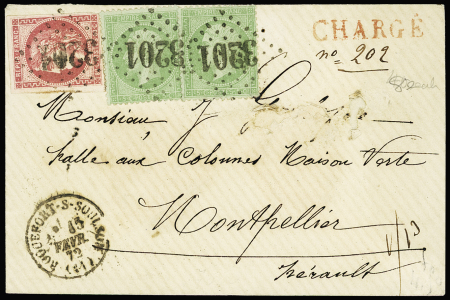 RÉPUB. FRANC.
3201 3201 3201
CHARGÉ
nº 202
Monsieur J
Halle aux Colonnes Maison Verte
Montpellier
Hérault
ROQUEFORT-S-SOULZON
15
FEVR
72